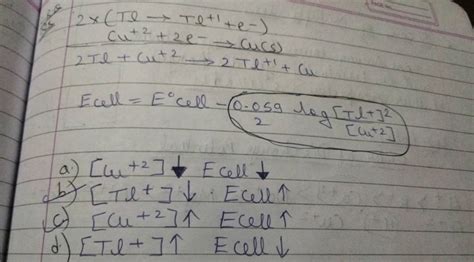 2×(Tl → Tl+1 + e-)
Cu+2 + 2e- → Cu(s)
2Tl + Cu+2 → 2Tl+1 + Cu
Ecell = E°cell - 0.059/2 log [Tl+]2/[Cu+2]
a) [Cu+2] ↓ Ecell ↓
b) [Tl+] ↓ Ecell ↑
c) [Cu+2] ↑ Ecell ↑
d) [Tl+] ↑ Ecell ↓